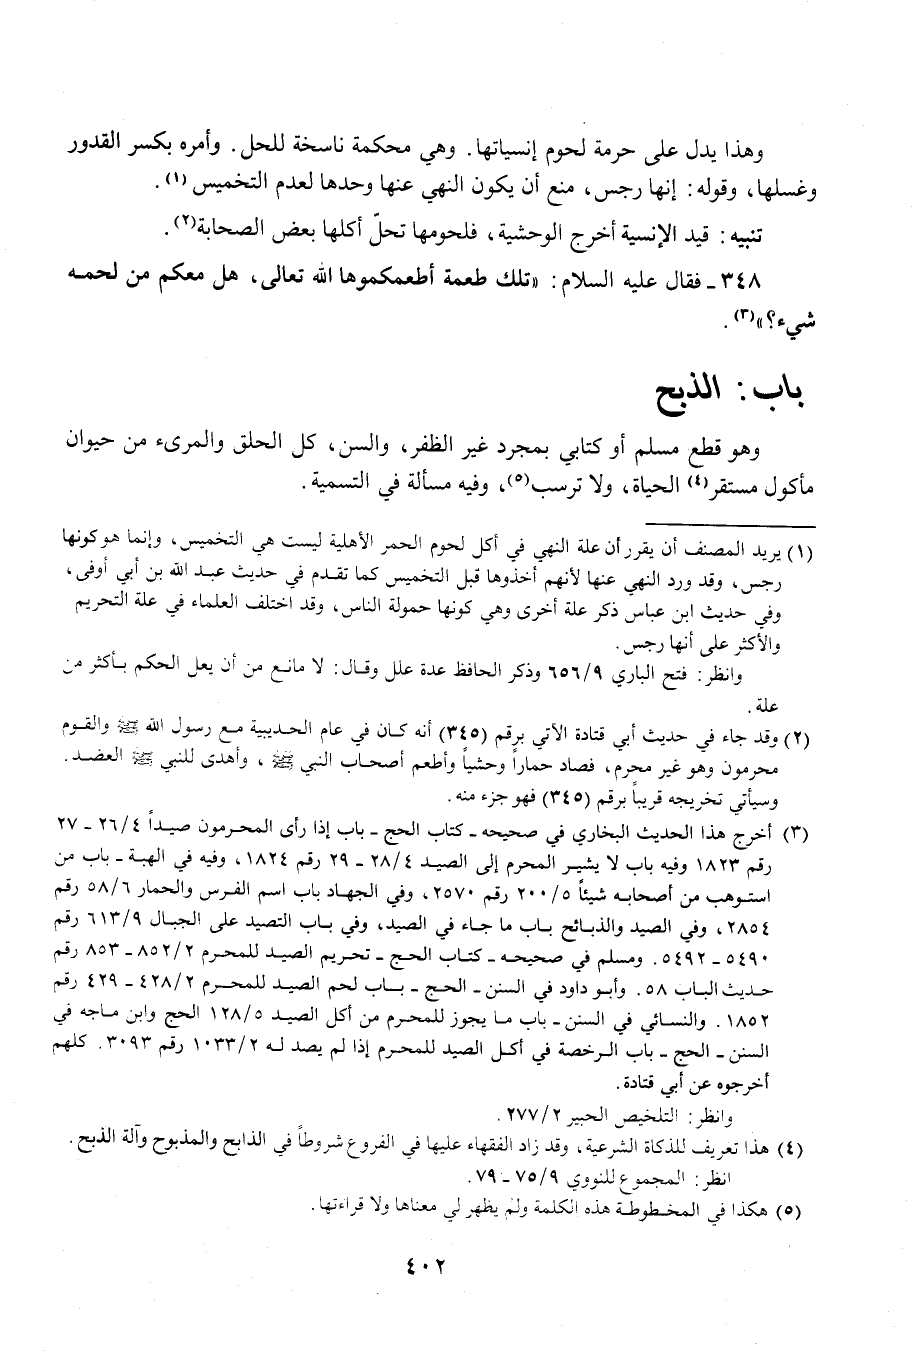 وهذا يدل على حرمة لحوم إنسياتها. وهي محكمة ناسخة للحل. وأمره بكسر القدور
وغسلها، وقوله: إنها رجس، منع أن يكون النهي عنها وحدها لعدم التخميس (١).
تنبيه: قيد الإنسية أخرج الوحشية، فلحومها تحلّ أكلها بعض الصحابة(٢).
٣٤٨ ـ فقال عليه السلام: «تلك طعمة أطعمكموها الله تعالى، هل معكم من لحمه
شيء؟»(٣).
باب: الذبح
وهو قطع مسلم أو كتابي بمجرد غير الظفر، والسن، كل الحلق والمريء من حيوان
مأكول مستقر(٤) الحياة، ولا ترسب(٥)، وفيه مسألة في التسمية.
(١) يريد المصنف أن يقرر أن علة النهي في أكل لحوم الحمر الأهلية ليست هي التخميس، وإنما هو كونها
رجس، وقد ورد النهي عنها لأنهم أخذوها قبل التخميس كما تقدم في حديث عبد الله بن أبي أوفى،
وفي حديث ابن عباس ذكر علة أخرى وهي كونها حمولة الناس، وقد اختلف العلماء في علة التحريم
والأكثر على أنها رجس.
وانظر: فتح الباري ٦٥٦/٩ وذكر الحافظ عدة علل وقال: لا مانع من أن يعل الحكم بأكثر من
علة.
(٢) وقد جاء في حديث أبي قتادة الآتي برقم (٣٤٥) أنه كان في عام الحديبية مع رسول الله ﷺ والقوم
محرمون وهو غير محرم، فصاد حماراً وحشياً وأطعم أصحاب النبي ﷺ، وأهدى للنبي ﷺ العضد.
وسيأتي تخريجه قريباً برقم (٣٤٥) فهو جزء منه.
(٣) أخرج هذا الحديث البخاري في صحيحه ـ كتاب الحج ـ باب إذا رأى المحرمون صيداً ٢٦/٤ ـ ٢٧
رقم ١٨٢٣ وفيه باب لا يشير المحرم إلى الصيد ٢٨/٤ ـ ٢٩ رقم ١٨٢٤، وفيه في الهبة ـ باب من
استوهب من أصحابه شيئاً ٢٠٠/٥ رقم ٢٥٧٠، وفي الجهاد باب اسم الفرس والحمار ٥٨/٦ رقم
٢٨٥٤، وفي الصيد والذبائح باب ما جاء في الصيد، وفي باب التصيد على الجبال ٦١٣/٩ رقم
٥٤٩٠ ـ ٥٤٩٢. ومسلم في صحيحه ـ كتاب الحج ـ تحريم الصيد للمحرم ٨٥٢/٢ ـ ٨٥٣ رقم
حديث الباب ٥٨. وأبو داود في السنن ـ الحج ـ باب لحم الصيد للمحرم ٤٢٨/٢ ـ ٤٢٩ رقم
١٨٥٢. والنسائي في السنن ـ باب ما يجوز للمحرم من أكل الصيد ١٢٨/٥ الحج وابن ماجه في
السنن ـ الحج ـ باب الرخصة في أكل الصيد للمحرم إذا لم يصد له ١٠٣٣/٢ رقم ٣٠٩٣. كلهم
أخرجوه عن أبي قتادة.
وانظر: التلخيص الحبير ٢٧٧/٢.
(٤) هذا تعريف للذكاة الشرعية، وقد زاد الفقهاء عليها في الفروع شروطاً في الذابح والمذبوح وآلة الذبح.
انظر: المجموع للنووي ٧٥/٩ ـ ٧٩.
(٥) هكذا في المخطوطة هذه الكلمة ولم يظهر لي معناها ولا قراءتها.
٤٠٢